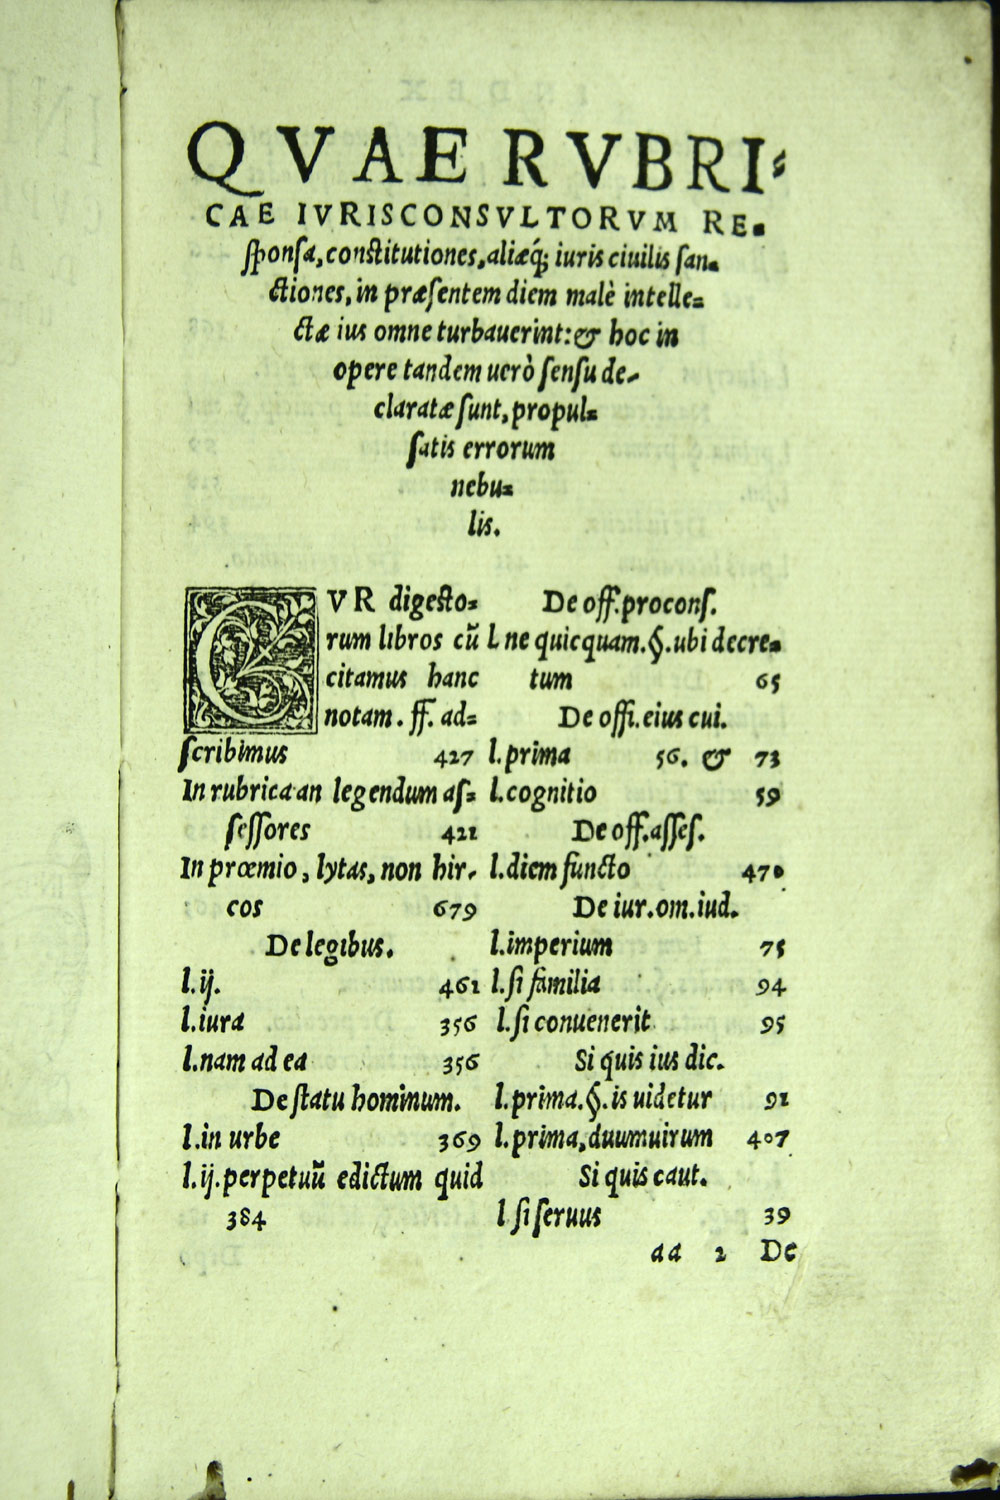 QVAE RVBRI⸗
CAE IVRISCONSVLTORVM RE⸗
ſponſa, conſtitutiones, aliæq́; iuris ciuilis ſan⸗
ctiones, in præſentem diem malè intelle⸗
ctæ ius omne turbauerint: & hoc in
opere tandem uerò ſenſu de⸗
claratæ ſunt, propul⸗
ſatis errorum
nebu⸗
lis.
CVR digeſto⸗
rum libros cū
citamus hanc
notam. ff. ad⸗
ſcribimus 427
In rubrica an legendum aſ⸗
ſeſſores 421
In proœmio, lytas, non hir⸗
cos 679
De legibus.
l.ij. 461
l.iura 356
l.nam ad ea 356
De ſtatu hominum.
l.in urbe 369
l.ij.perpetuū edictum quid
384
De off.proconſ.
l ne quicquam.§.ubi decre⸗
tum 65
De offi.eius cui.
l.prima 56. & 73
l.cognitio 59
De off.aſſeſ.
l.diem functo 470
De iur.om.iud.
l.imperium 75
l.ſi familia 94
l.ſi conuenerit 95
Si quis ius dic.
l.prima.§.is uidetur 91
l.prima,duumuirum 407
Si quis caut.
l ſi ſeruus 39
aa 2 De